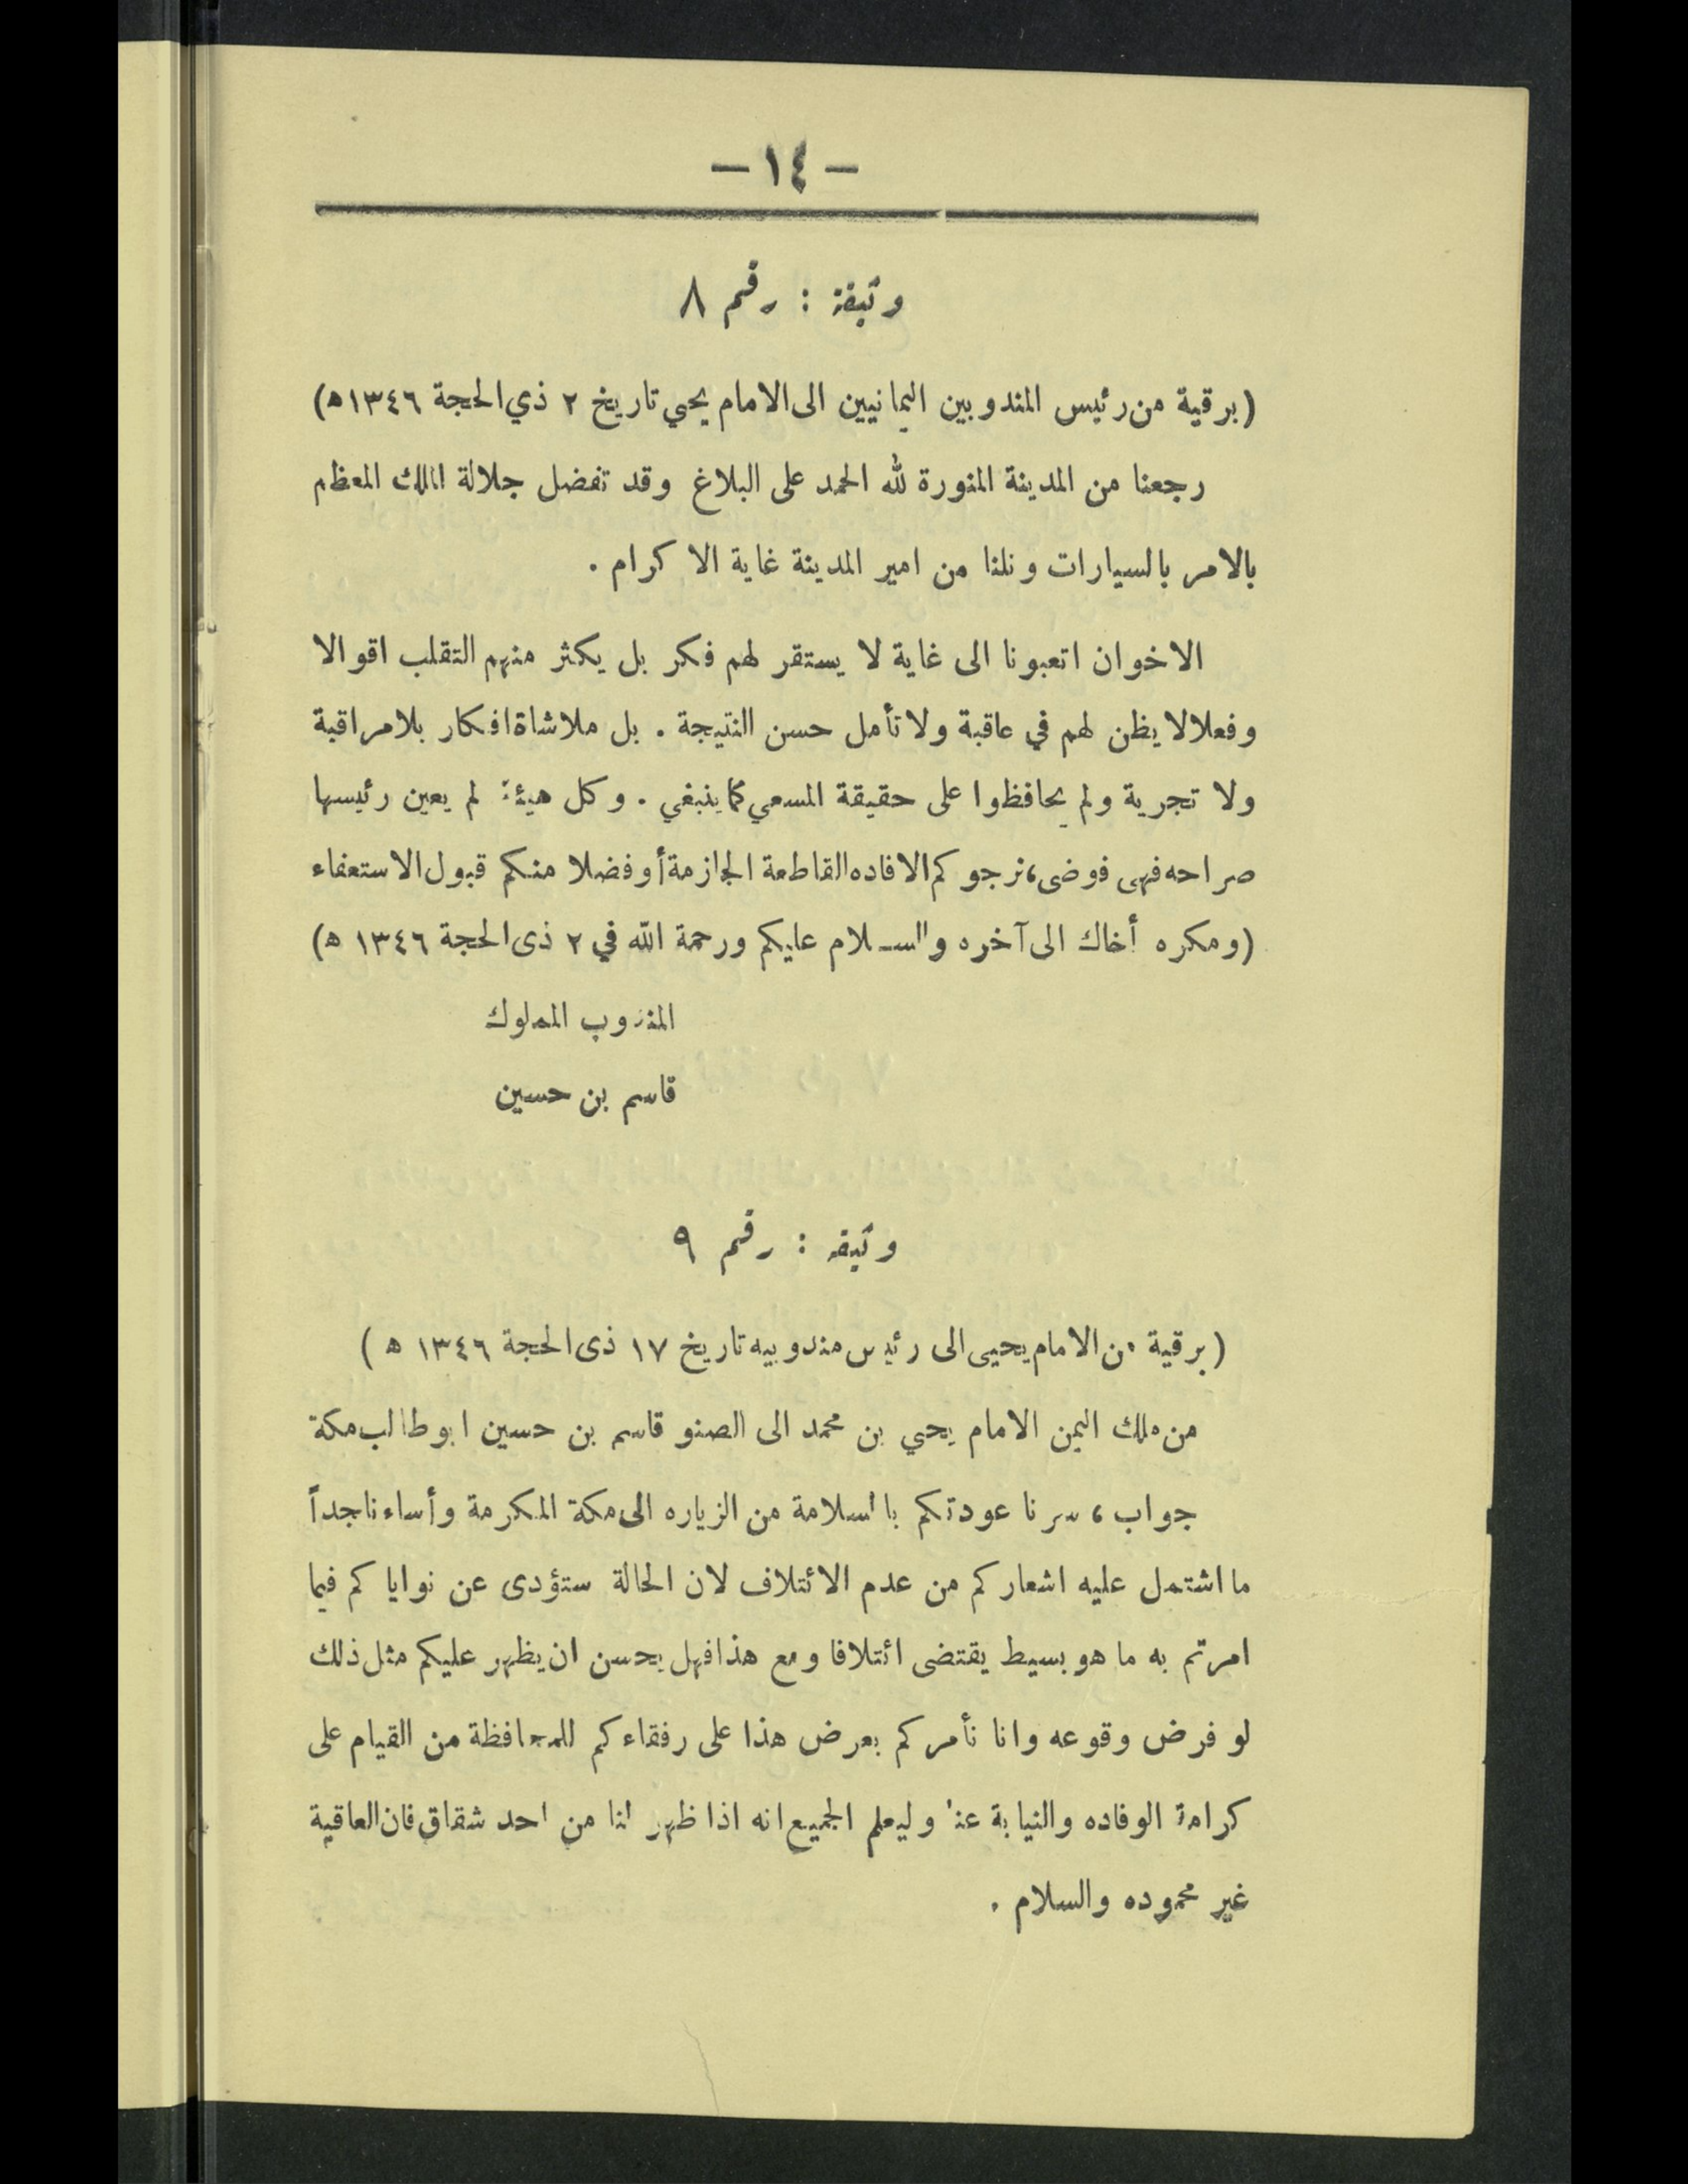 — ١٤ —
وثيقة : رقم ٨
(برقية من رئيس المندوبين اليمانيين الى الامام يحيى تاريخ ٢ ذي الحجة ١٣٤٦ه)
رجعنا من المدينة المنورة لله الحمد على البلاغ وقد تفضل جلالة الملك المعظم
بالامر بالسيارات ونلنا من امير المدينة غاية الاكرام .
الاخوان اتعبونا الى غاية لا يستقر لهم فكر بل يكثر منهم التقلب اقوالا
وفعلا لا يظن لهم في عاقبة ولا تأمل حسن النتيجة . بل ملاشاة افكار بلا مراقبة
ولا تجربة ولم يحافظوا على حقيقة المسعي كما ينبغي . وكل هيئة لم يعين رئيسها
صراحه فهى فوضى، نرجوكم الافاده القاطعة الجازمة أو فضلا منكم قبول الاستعفاء
(ومكره أخاك الى آخره والسلام عليكم ورحمة الله في ٢ ذى الحجة ١٣٤٦ ه)
المندوب المملوك
قاسم بن حسين
وثيقه : رقم ٩
(برقية من الامام يحيى الى رئيس مندوبيه تاريخ ١٧ ذى الحجة ١٣٤٦ ه)
من ملك اليمن الامام يحيي بن محمد الى الصنو قاسم بن حسين ابو طالب مكة
جواب، سرنا عودتكم بالسلامة من الزياره الى مكة المكرمة وأساءنا جداً
ما اشتمل عليه اشعاركم من عدم الائتلاف لان الحالة ستؤدى عن نواياكم فيما
امرتم به ما هو بسيط يقتضى ائتلافا ومع هذا فهل يحسن ان يظهر عليكم مثل ذلك
لو فرض وقوعه وانا نأمركم بعرض هذا على رفقاءكم للمحافظة من القيام على
كرامة الوفاده والنيابة عنا وليعلم الجميع انه اذا ظهر لنا من احد شقاق فان العاقبة
غير محموده والسلام .